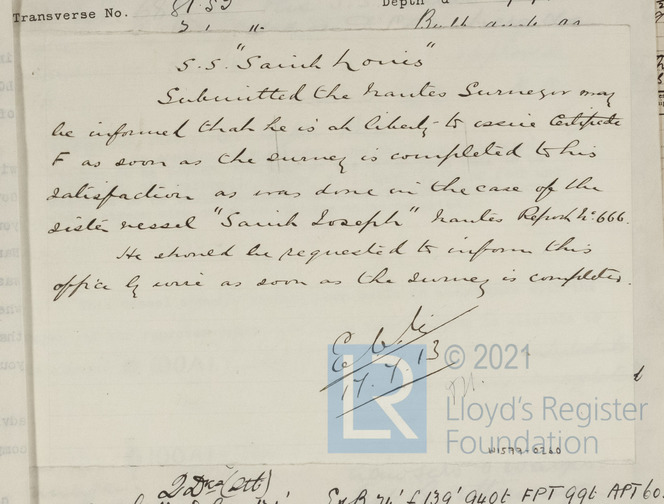 Transverse No. 81.53 Depth d
7' "
S.S. "Saint Louis"
Submitted the Nantes Surveyor may
be informed that he is at liberty to issue Certificate
F as soon as the survey is completed to his
satisfaction as was done in the case of the
sister vessel "Saint Joseph" Nantes Report No. 666.
He should be requested to inform this
office by wire as soon as the survey is completed.
17.7.13
LR © 2021
Lloyd's Register
Foundation
W1593-0260
f 139' 940t FPT 99t APT 60